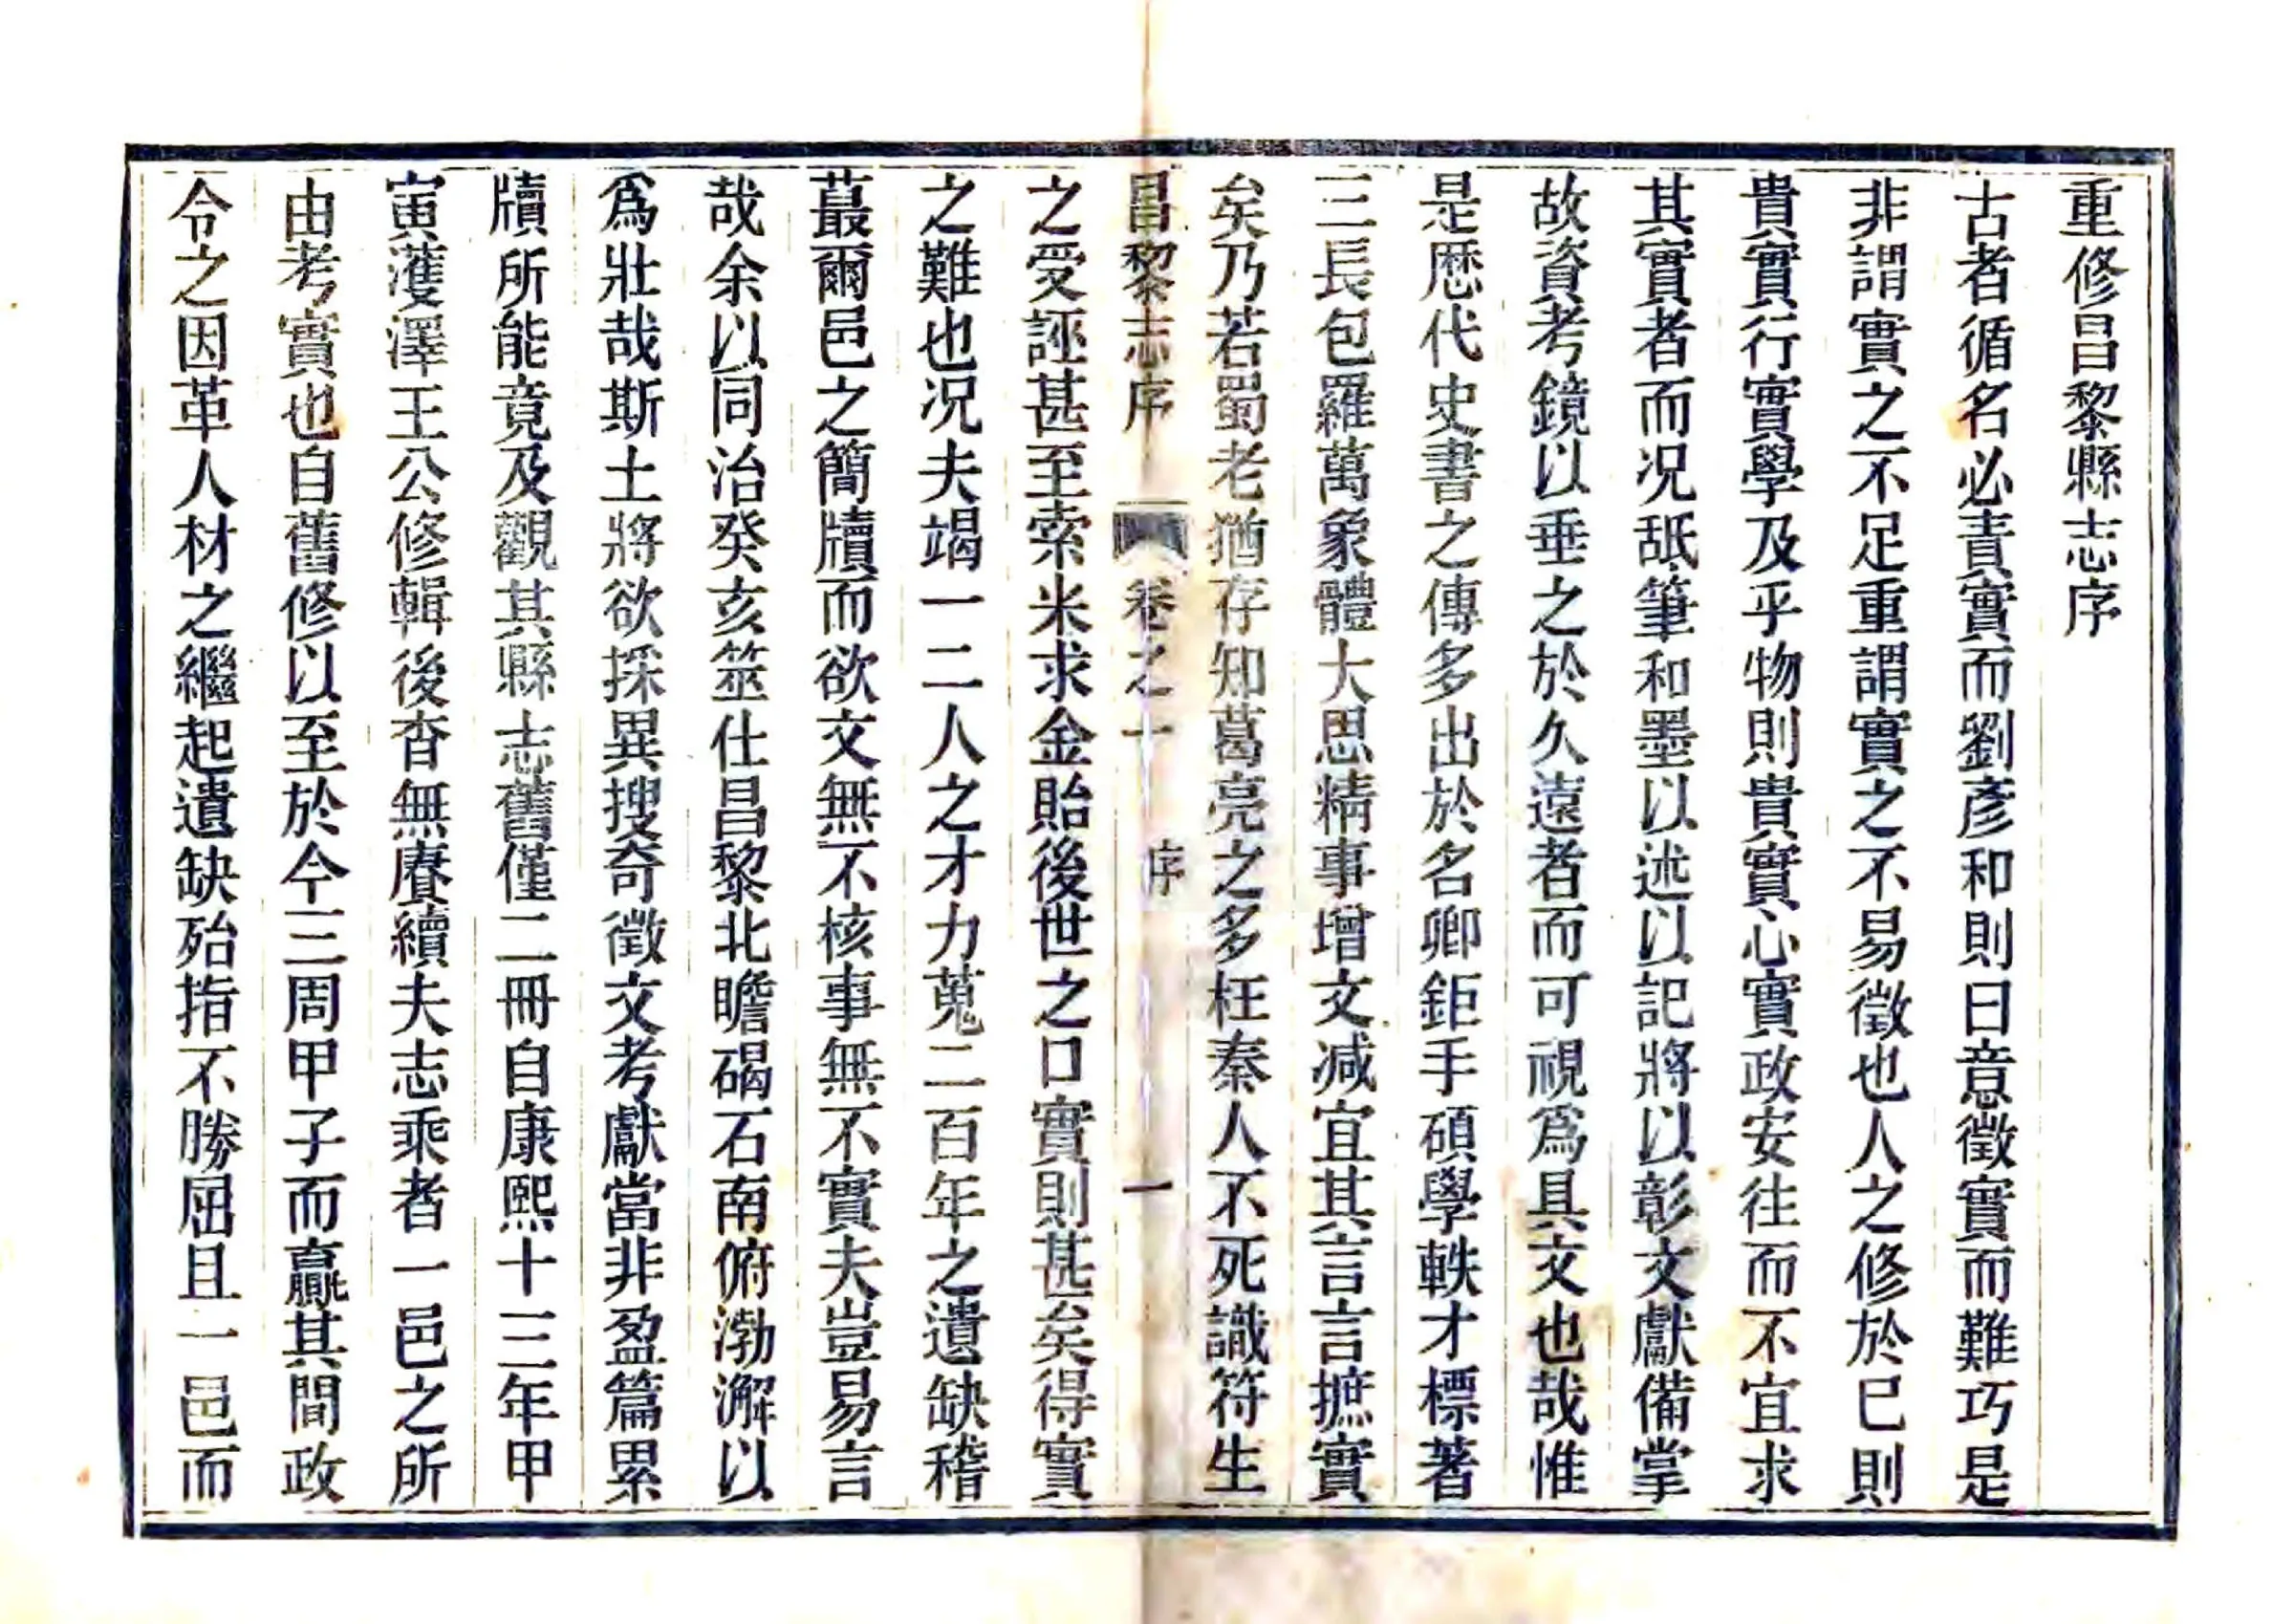 重修昌黎縣志序
古者循名必責實而劉彥和則曰意徵實而難巧是
非謂實之不足重謂實之不易徵也人之修於已則
貴實行實學及乎物則貴實心實政安往而不宜求
其實者而况舐筆和墨以述以記將以彰文獻備掌
故資考鏡以垂之於久遠者而可視爲具文也哉惟
是歷代史書之傳多出於名卿鉅手碩學軼才標著
三長包羅萬象體大思精事增文减宜其言言摭實
矣乃若蜀老猶存知葛亮之多枉秦人不死識符生
昌黎志序 卷之十 序 一
之受誣甚至索米求金貽後世之口實則甚矣得實
之難也况夫竭一二人之才力蒐二百年之遺缺稽
蕞爾邑之簡牘而欲文無不核事無不實夫豈易言
哉余以同治癸亥筮仕昌黎北瞻碣石南俯渤澥以
爲壯哉斯土將欲採異搜奇徵文考獻當非盈篇累
牘所能竟及觀其縣志舊僅二冊自康熙十三年甲
寅濩澤王公修輯後杳無賡續夫志乘者一邑之所
由考實也自舊修以至於今三周甲子而贏其間政
令之因革人材之繼起遺缺殆指不勝屈且一邑而